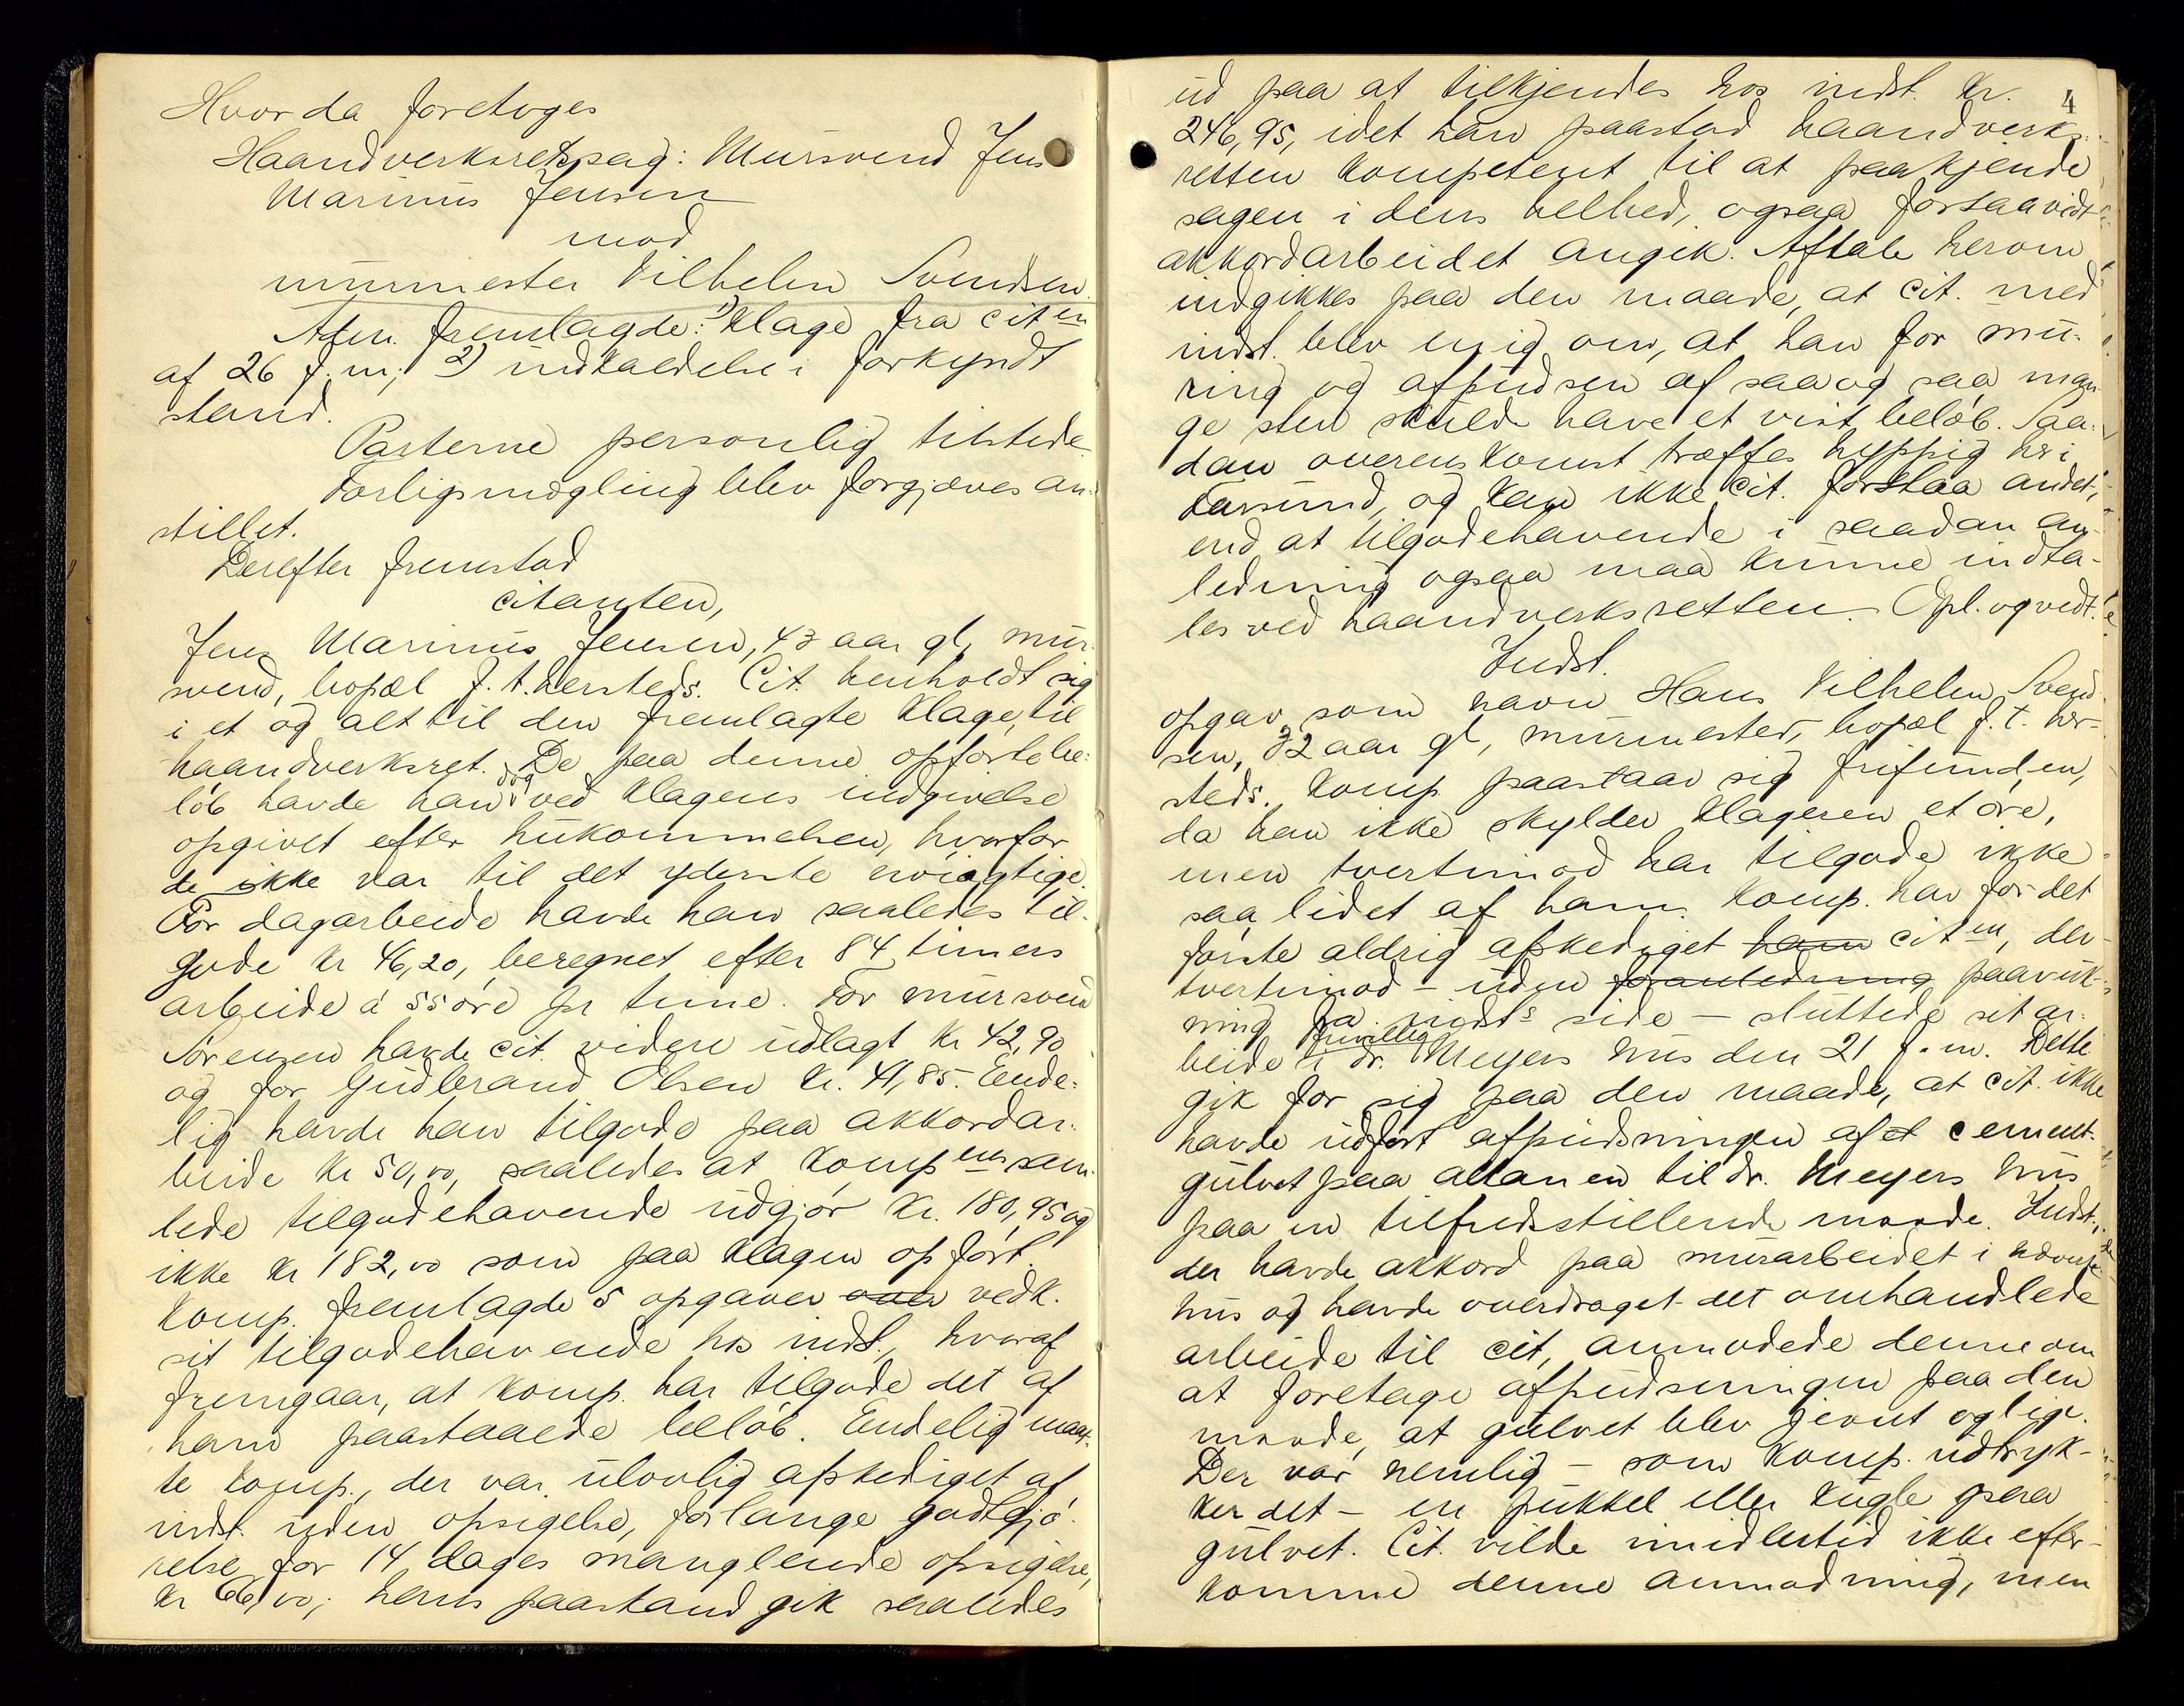 Hvor da foretoges
Haandverksretssag: Mursvend Jens
Marinus Jensen
mod
murmester Vilhelm Svendsen.
Adm. fremlagde: 1) Klage fra citen
af 26 f. m; 2) indkaldelse i forkyndt
stand.
Parterne personlig tilstede.
Forligsmægling blev forgjæves an-
stillet.
Derefter fremstod
citanten,
Jens Marinus Jensen, 43 aar gl, mur-
svend, bopæl f. t. hersteds. Cit. henholdt sig
i et og alt til den fremlagte klage, til
haandverksret. De paa denne opførte be-
løb havde han dog ved klagens indgivelse
opgivet efter hukommelsen, hvorfor
de ikke var til det yderste nøiagtige.
For dagarbeide havde han saaledes til-
gode kr 46,20, beregnet efter 84 timers
arbeide á 55 øre pr time. For mursvend
Sørensen havde cit. videre udlagt kr 42,90
og for Gudbrand Olsen kr. 41,85. Ende-
lig havde han tilgode paa akkordar-
beide kr 50,00, saaledes at kompens sam-
lede tilgodehavende udgjør kr. 180,95 og
ikke kr 182,00 som paa klagen opført.
Komp. fremlagde 5 opgaver over vedk.
sit tilgodehavende hos indst., hvoraf
fremgaar, at komp. har tilgode det af
ham paastaaede beløb. Endelig maat-
te komp., der var ulovlig afskediget af
indst. uden opsigelse, forlange godtgjø-
relse for 14 dages manglende opsigelse,
kr 66,00; hans paastand gik saaledes
4
ud paa at tilkjendes hos indst. kr.
246,95, idet han paastod haandverks-
retten kompetent til at paakjende
sagen i dens helhed, ogsaa forsaavidt
akkordarbeidet angik. Aftale herom
indgikkes paa den maade, at cit. med
indst. blev enig om, at han for mu-
ring og afpudsen af saa og saa man-
ge sten skulde have et vist beløb. Saa-
dan overenskomst træffes hyppig her i
Farsund, og kan ikke cit. forstaa andet,
end at tilgodehavende i saadan an-
ledning ogsaa maa kunne indta-
les ved haandverksretten. Opl. og vedt.
Indst.
opgav som navn Hans Vilhelm Svend-
sen, 32 aar gl, murmester, bopæl f. t. her-
steds. Komp paastaar sig frifunden,
da han ikke skylder klageren et øre,
men tvertimod har tilgode ikke
saa lidet af ham. Komp. har for det
første aldrig afskediget ham citen, der
tvertimod – uden foranledning paavirk-
ning fra indsts side – sluttede sit ar-
frivillig
beide i dr. Meyers hus den 21 f. m. Dette
gik for sig paa den maade, at cit. ikke
havde udført afpudsningen af et cement-
gulvet paa altanen til dr. Meyers hus
paa en tilfredsstillende maade. Indst.,
der havde akkord paa murarbeidet i nævnte
hus og havde overdraget det omhandlede
arbeide til cit, anmodede denne om
at foretage afpudsningen paa den
maade, at gulvet blev jevnt og lige.
Der var nemlig – som komp. udtryk-
ker det – en pukkel eller kugle paa
gulvet. Cit. vilde imidlertid ikke efter-
komme denne anmodning, men